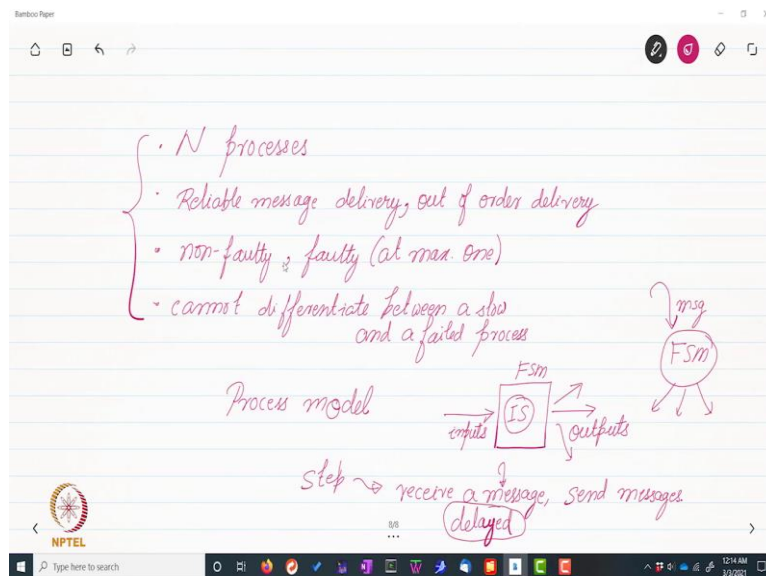 Bamboo Paper
· N processes
· Reliable message delivery, out of order delivery
· non-faulty, faulty (at max. one)
· cannot differentiate between a slow
and a failed process
msg
FSM
FSM
Process model
IS
inputs
outputs
Step ⇝ receive a message, send messages
delayed
8/8
NPTEL
Type here to search
12:14 AM
3/3/2021